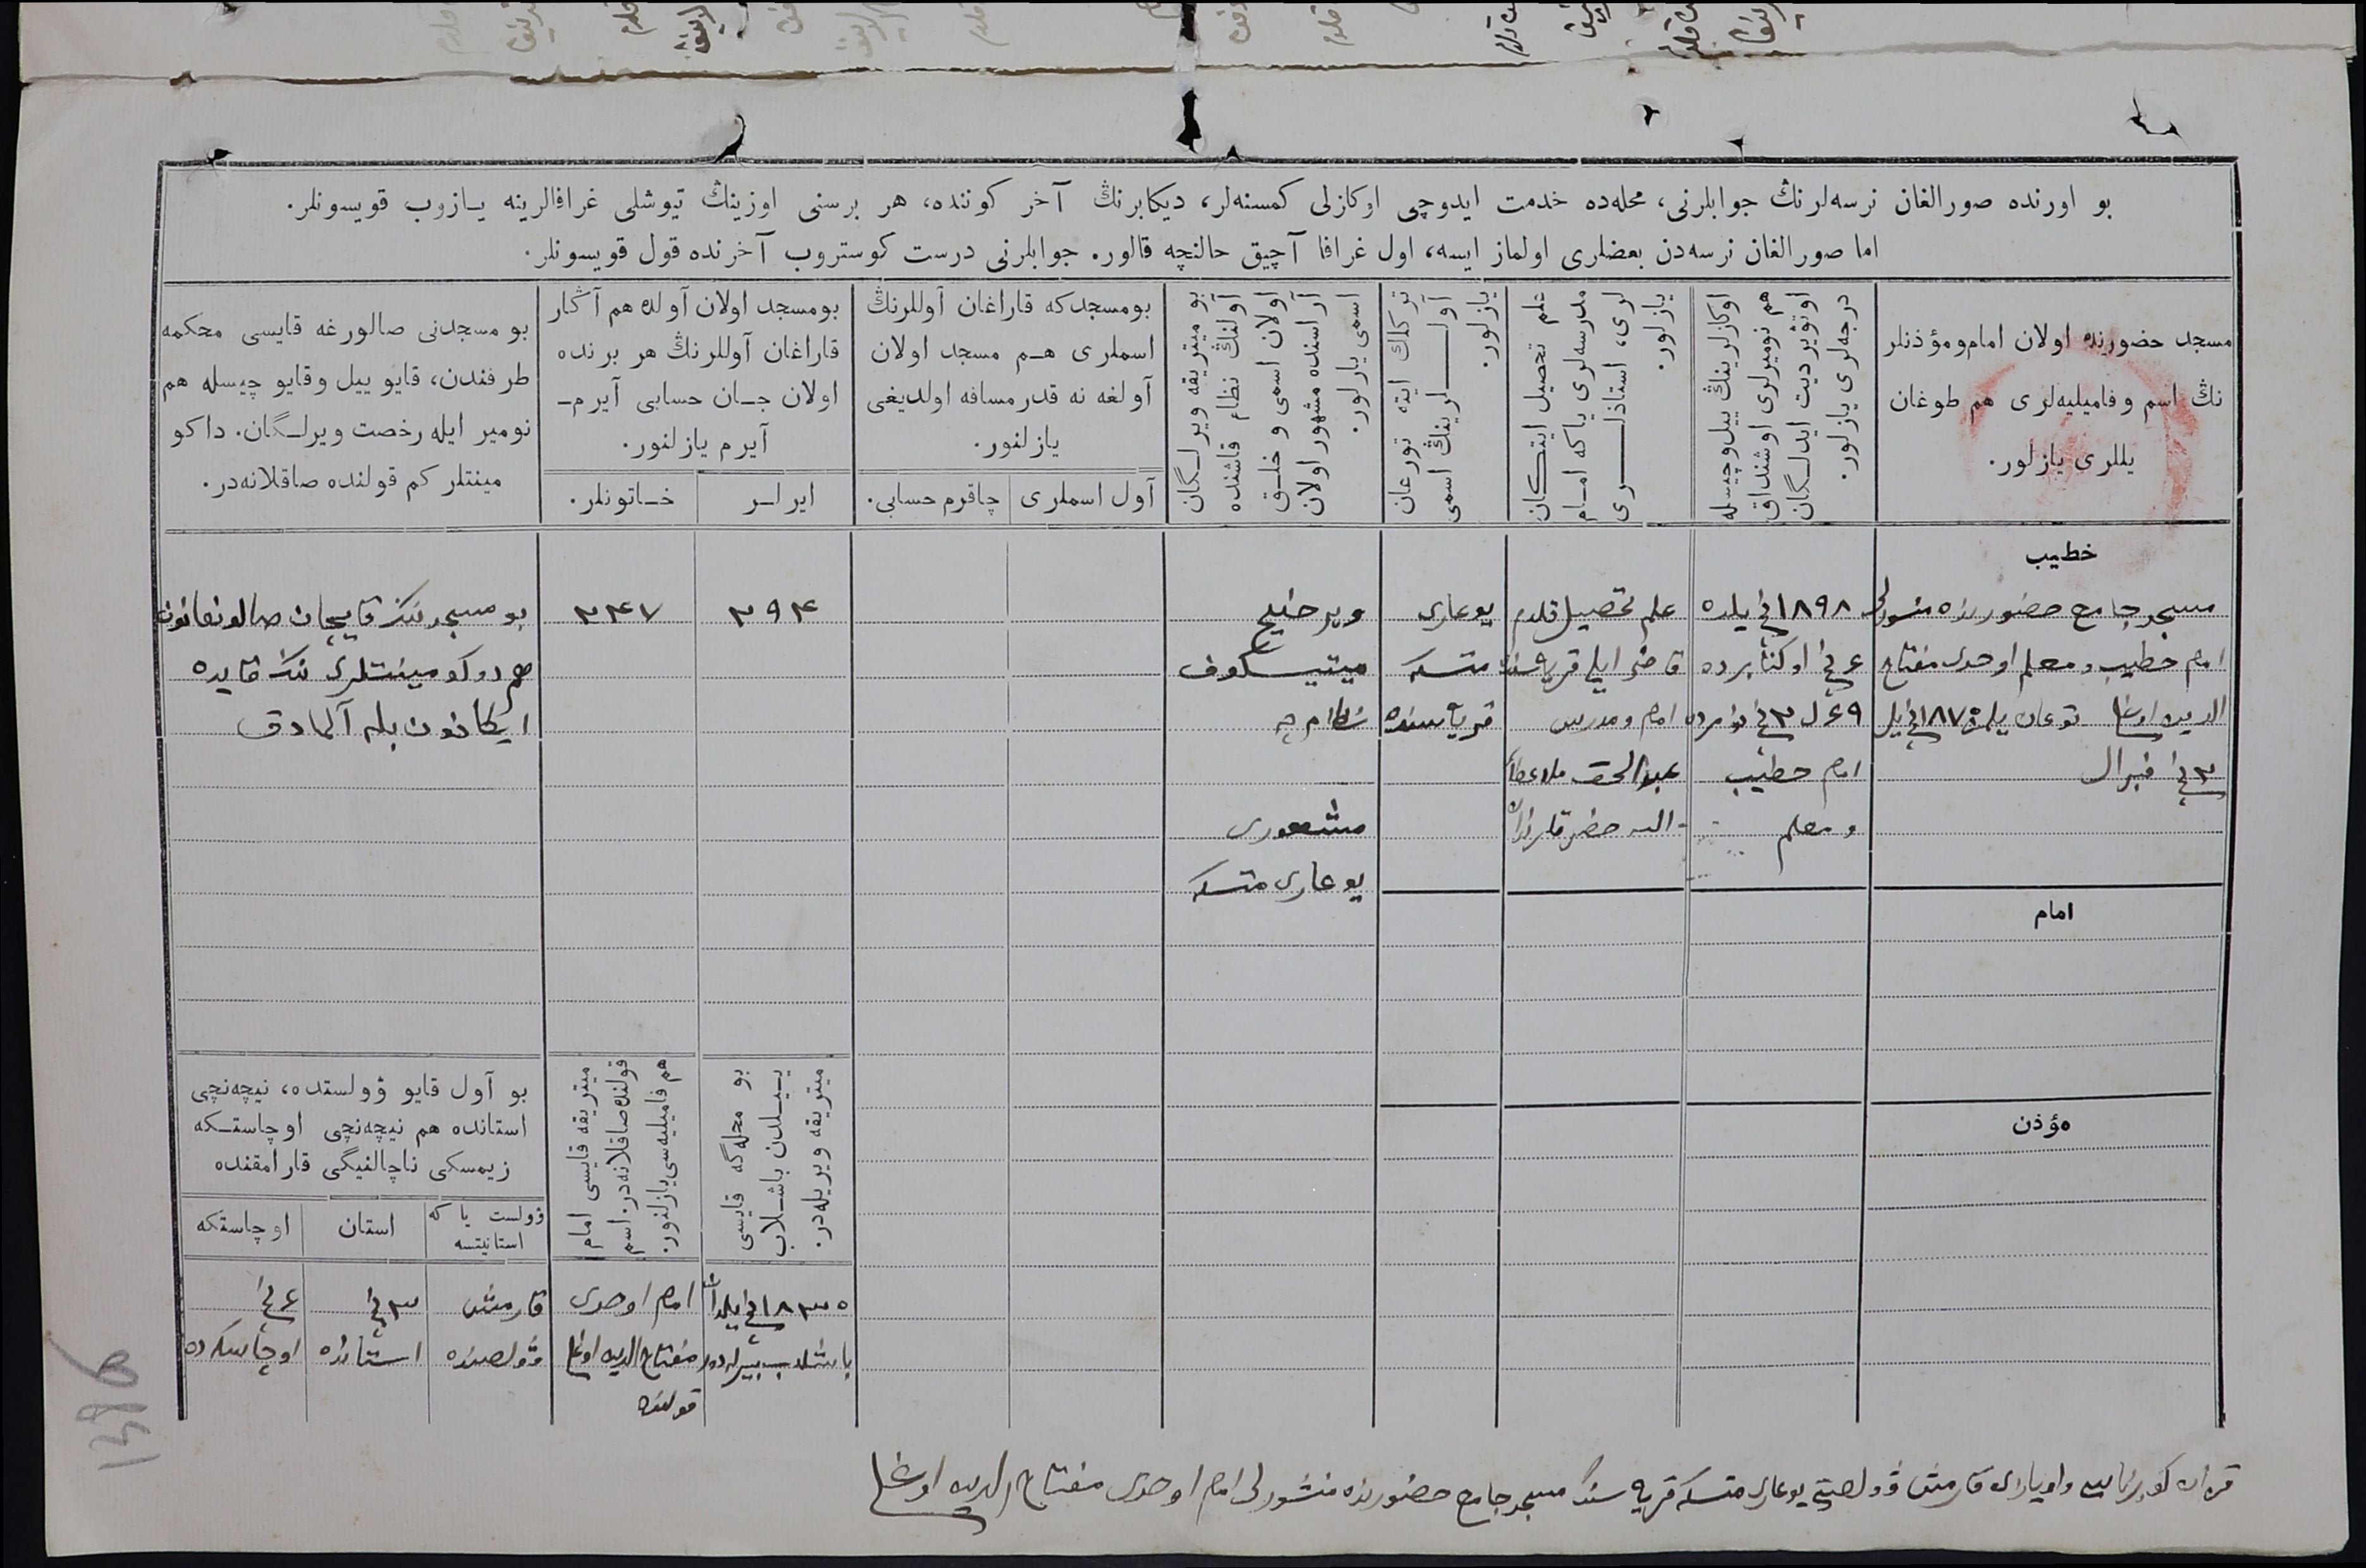 بو اورنده صورالغان نرسه‌لرنڭ جوابلرنی، محله‌ده خدمت ایدوچی اوکازلی کمسنه‌لر، دیکابرنڭ آخر کوننده، هر برسنی اوزینڭ تیوشلی غرافالرینه یـازوب قویسونلر.
اما صورالغان نرسه‌دن بعضلری اولماز ایسه، اول غرافا آچیق حالنچه قالور. جوابلرنی درست کوستروب آخرنده قول قویسونلر.
مسجد حضورنده اولان امام‌ومؤذنلر
نڭ اسم وفامیلیه‌لری هم طوغان
یللری یازلور.
اوکازلرینڭ ییل‌وچیسله
هم نومیرلری اوشنداق
اوتوێردیت ایدلـگان
درجه‌لری یازلور.
علم تحصیل ایتـکان
مدرسه‌لری یاکه امـام
لری، استاذلـــری
یازلور.
ترکلك ایته تورغان
آولــــلرینڭ اسمی
یازلور.
بو میتریقه ویرلـگان
آولنڭ نظام قاشنده
اولان اسمی و خلـق
آراسنده مشهور اولان
اسمی یازلور.
بومسجدکه قاراغان آوللرنڭ
اسملری هـم مسجد اولان
آولغه نه قدر مسافه اولدیغی
یازلنور.
آول اسملری
چاقرم حسابی.
بومسجد اولان آولده هم آڭار
قاراغان آوللرنڭ هر برنده
اولان جـان حسابی آیرم-
آیرم یازلنور.
ایرلـر
خـاتونلر.
بو مسجدنی صالورغه قایسی محکمه
طرفندن، قایو ییل وقایو چیسله هم
نومیر ایله رخصت ویرلـگان. داکو
مینتلر کم قولنده صاقلانه‌در.
خطیب
مسجد جامع حضورنده منشورلی
امام خطیب و معلم اوحدی مفتاح
الدین اوغلی توغان یلم
۲نچی فبرال
۱۸۹۸نچی یلده
۶نچی اوکتابرده
امام خطیب
و معلم
علم تحصیل قلدم
قاضی ایلی قریه‌سنڭ
امام و مدرس
عبدالحق ملا عطا
الله حضرتلرندن
یوغاری
متسکه
قریه‌سنده
ویرخنیی
میتیسکوف
نظامچه
مشهوری
یوغاری متسکه
۳۹۴
۳۴۷
بو مسجدننڭ قایچان صالونغانون
هم دوکومینتلری ننڭ قایده
ایکانون بله آلمادق
امام
مؤذن
بو محله‌گه قایسی
یـیـلدن باشـلاب
میتریقه ویریله‌در.
میتریقه قایسی امام
قولنده‌صاقلانه‌در. اسم
هم فامیلیه‌سی‌یازلنور.
بو آول قایو ۏولستده، نیچه‌نچی
استانده هم نیچه‌نچی اوچاستـکه
زیمسکی ناچالنیگی قارامقنده
ۏولست یا که
استانیتسه
استان
اوچاستکه
۱۸۳۵نچی یلدن
باشلاب بیرله‌در
امام اوحدی
مفتاح الدین اوغلی
قولنده
قارمش
ۏولصنده
۳نچی
استانده
۶نچی
اوچاسکه‌ده
قزان کوبرناسی یوغاری متسکه قریه‌سنڭ مسجد جامع حضورنده منشورلی امام اوحدی مفتاح الدین اوغلی